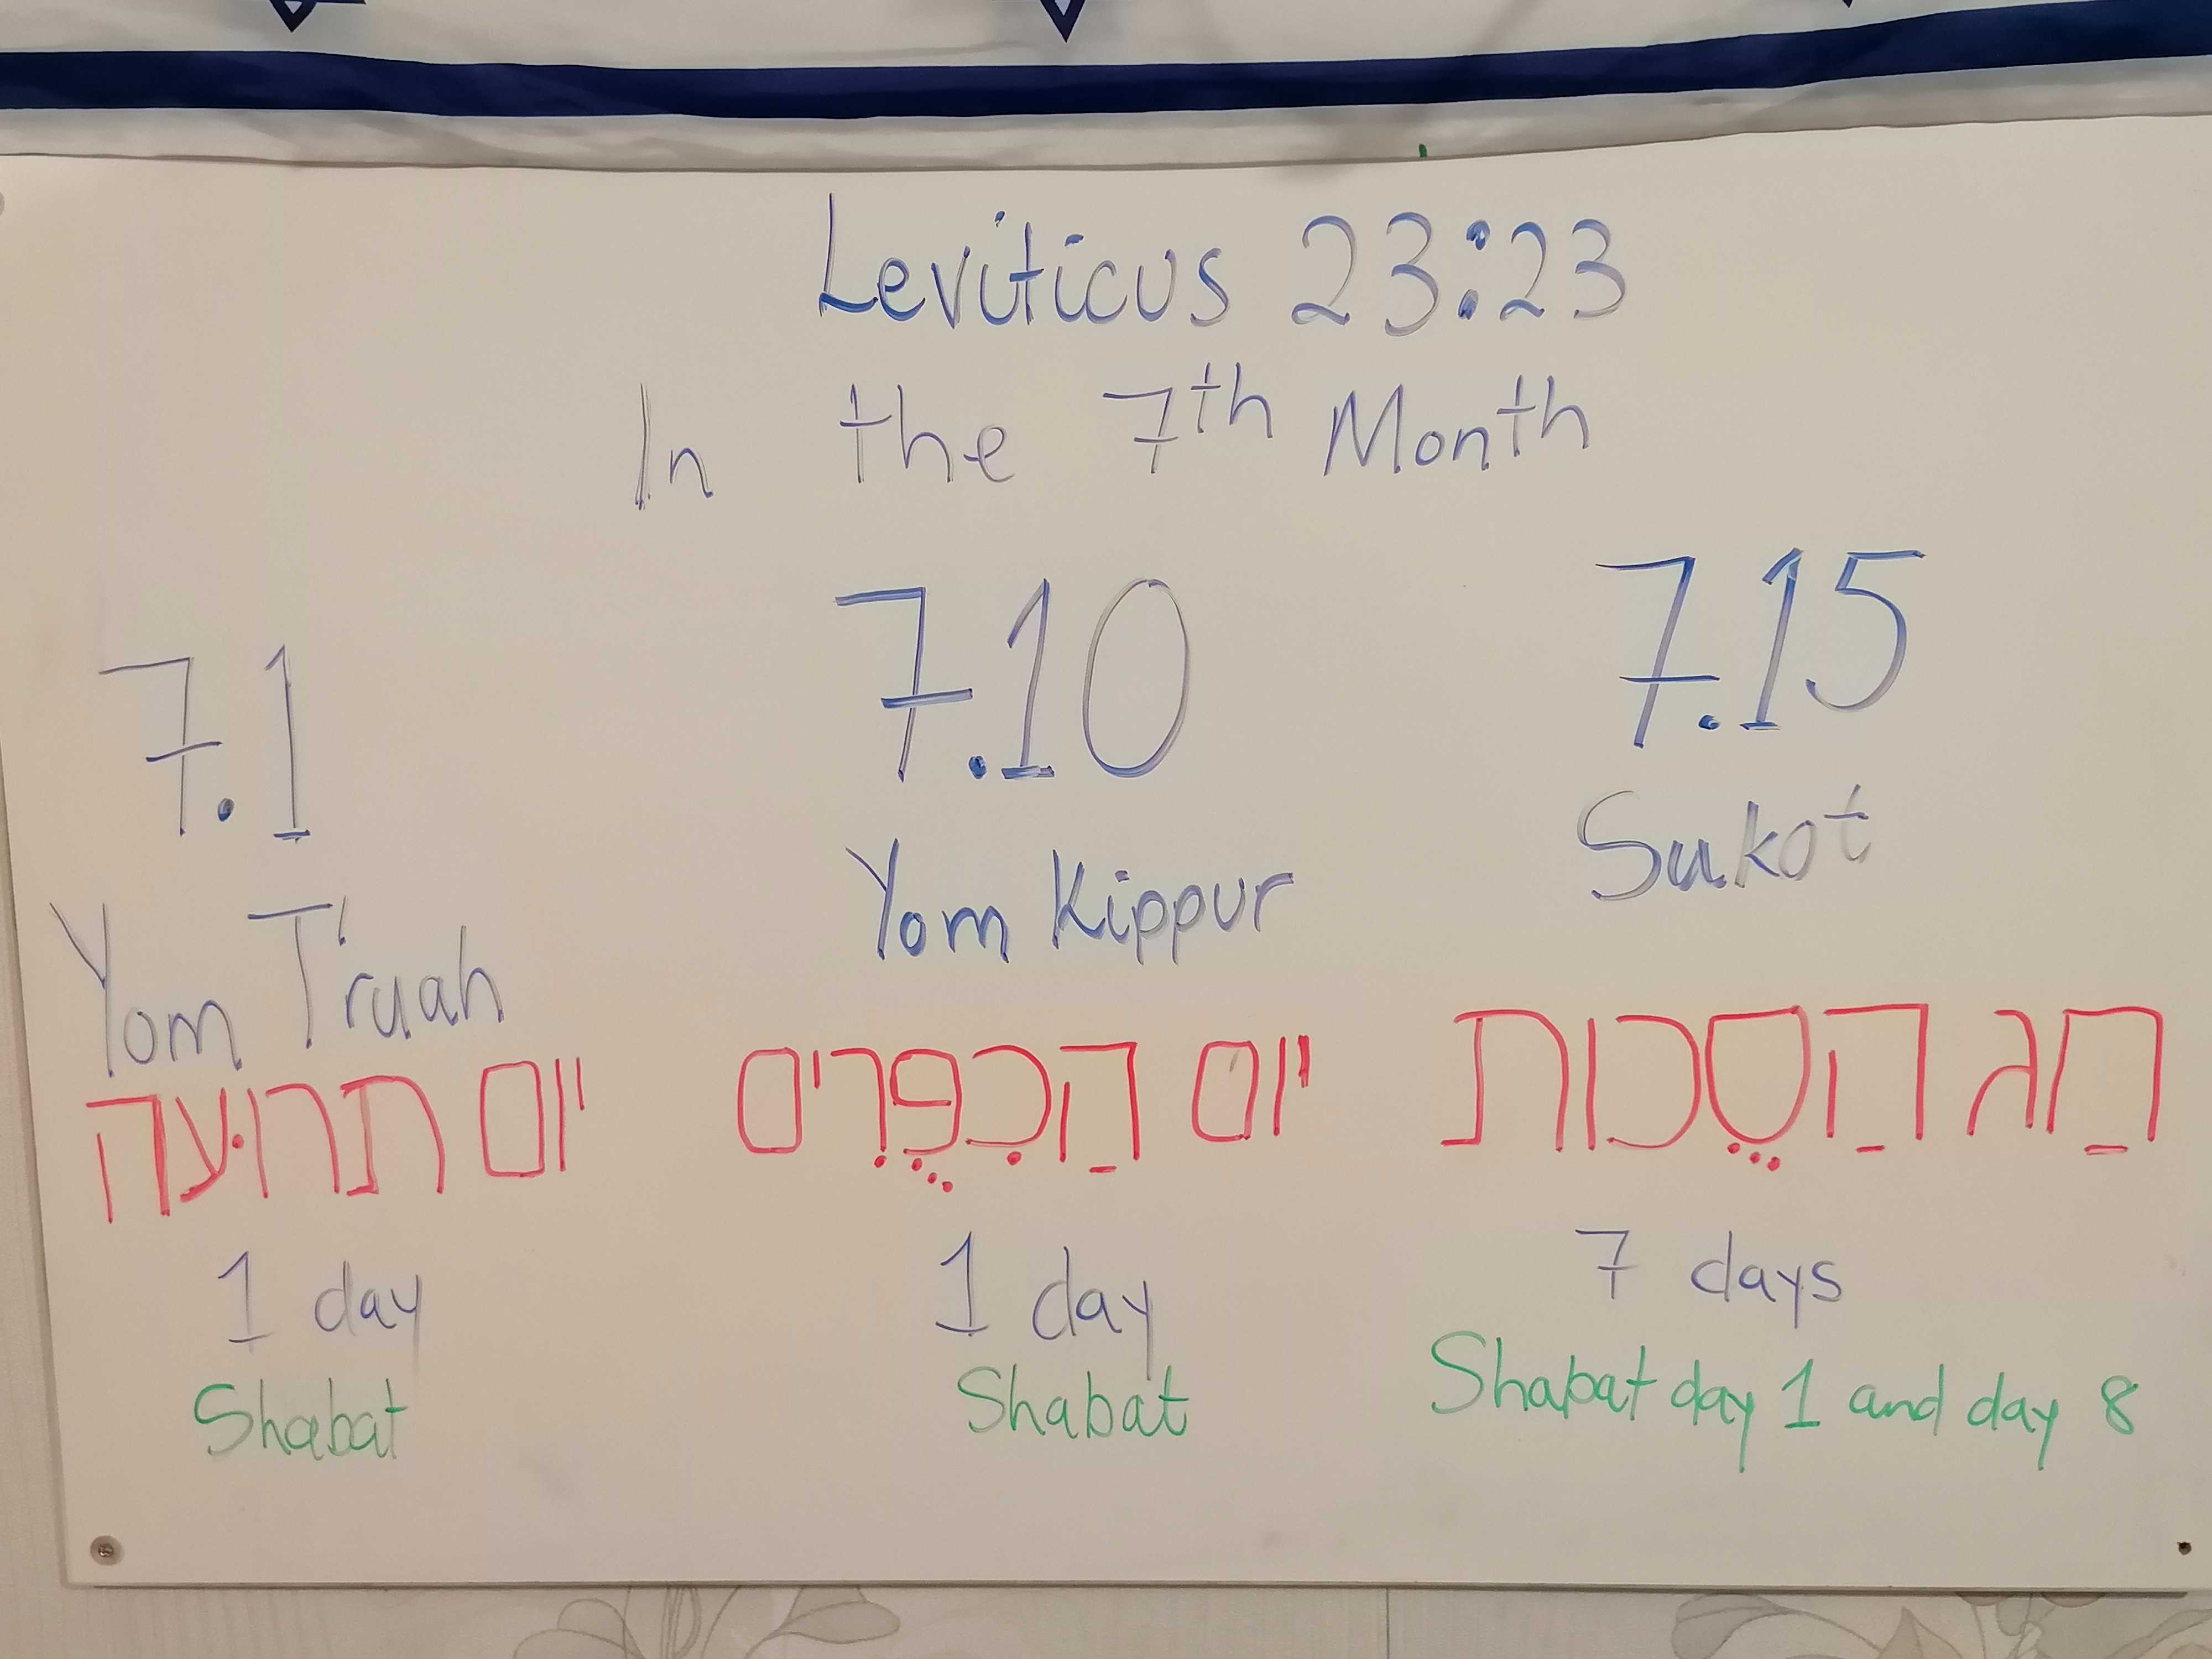 Leviticus 23:23
In the 7th Month
7.1
Yom T'ruah
יום תרוּעה
1 day
Shabat
7.10
Yom Kippur
יום הַכִפֻרִים
1 day
Shabat
7.15
Sukot
חַג הַסֻכות
7 days
Shabat day 1 and day 8